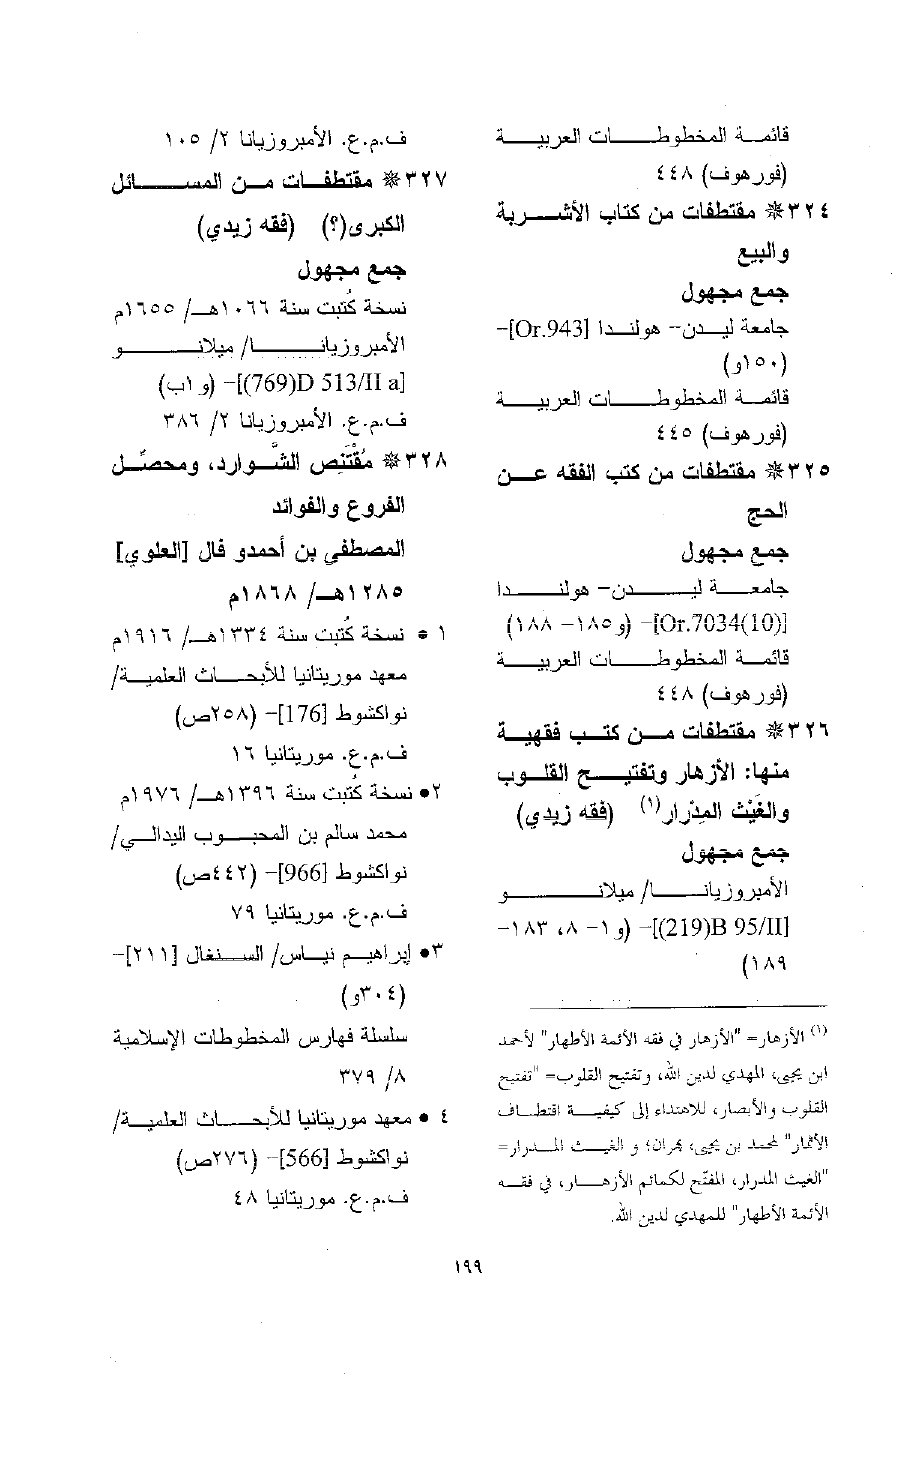 قائمة المخطوطات العربية
(فورهوف) ٤٤٨
٣٢٤ * مقتطفات من كتاب الأشربة
والبيع
جمع مجهول
جامعة ليدن- هولندا [Or.943]-
(١٥٠و)
قائمة المخطوطات العربية
(فورهوف) ٤٤٥
٣٢٥ * مقتطفات من كتب الفقه عن
الحج
جمع مجهول
جامعة ليدن- هولندا
[Or.7034(10)]- (و١٨٥- ١٨٨)
قائمة المخطوطات العربية
(فورهوف) ٤٤٨
٣٢٦ * مقتطفات من كتب فقهية
منها: الأزهار وتفتيح القلوب
والغَيْث المِدْرار(١) (فقه زيدي)
جمع مجهول
الأمبروزيانا/ ميلانو
[(219)B 95/II]- (و١- ٨، ١٨٣-
١٨٩)
(١) الأزهار= "الأزهار في فقه الأئمة الأطهار" لأحمد
ابن يحيى، المهدي لدين الله، وتفتيح القلوب= "تفتيح
القلوب والأبصار، للاهتداء إلى كيفية اقتطاف
الأثمار" لمحمد بن يحيى، بهران؛ و الغيث المدرار=
"الغيث المدرار، المفتّح لكمائم الأزهار، في فقه
الأئمة الأطهار" للمهدي لدين الله.
ف.م.ع. الأمبروزيانا ٢/ ١٠٥
٣٢٧ * مقتطفات من المسائل
الكبرى(؟) (فقه زيدي)
جمع مجهول
نسخة كُتبت سنة ١٠٦٦هـ/ ١٦٥٥م
الأمبروزيانا/ ميلانو
[(769)D 513/II a]- (و١ب)
ف.م.ع. الأمبروزيانا ٢/ ٣٨٦
٣٢٨ * مُقْتَنِص الشَّوارد، ومحصِّل
الفروع والفوائد
المصطفى بن أحمدو فال [العلوي]
١٢٨٥هـ/ ١٨٦٨م
١ • نسخة كُتبت سنة ١٣٣٤هـ/ ١٩١٦م
معهد موريتانيا للأبحاث العلمية/
نواكشوط [176]- (٢٥٨ص)
ف.م.ع. موريتانيا ١٦
٢• نسخة كُتبت سنة ١٣٩٦هـ/ ١٩٧٦م
محمد سالم بن المحبوب اليدالي/
نواكشوط [966]- (٤٤٢ص)
ف.م.ع. موريتانيا ٧٩
٣• إبراهيم نياس/ السنغال [٢١١]-
(٣٠٤و)
سلسلة فهارس المخطوطات الإسلامية
٨/ ٣٧٩
٤ • معهد موريتانيا للأبحاث العلمية/
نواكشوط [566]- (٢٧٦ص)
ف.م.ع. موريتانيا ٤٨
١٩٩